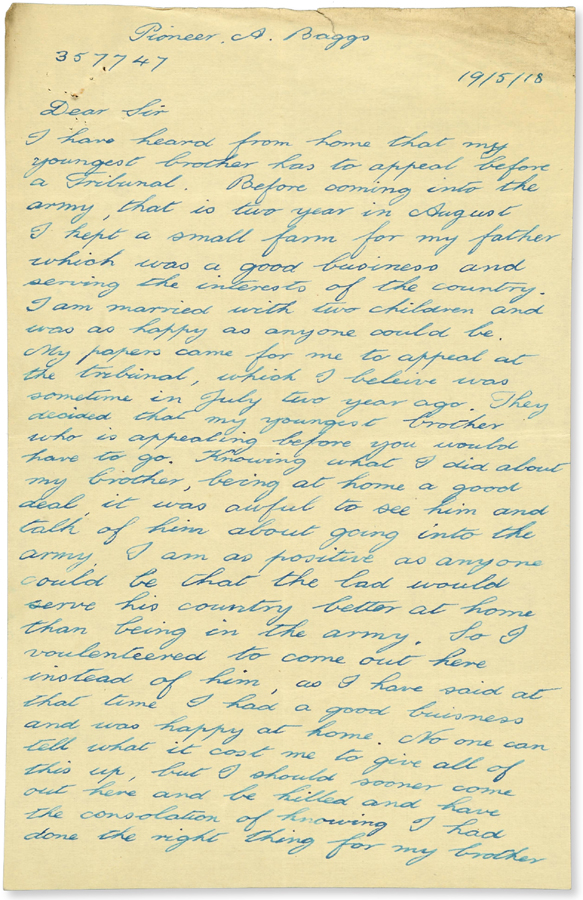 Pioneer. A. Baggs
357747
19/5/18
Dear Sir
I have heard from home that my
youngest brother has to appeal before
a Tribunal. Before coming into the
army, that is two year in August
I kept a small farm for my father
which was a good business and
serving the interests of the country.
I am married with two children and
was as happy as anyone could be.
My papers came for me to appeal at
the tribunal, which I beleive was
sometime in July two year ago. They
decided that my youngest brother
who is appealing before you would
have to go. Knowing what I did about
my brother, being at home a good
deal, it was awful to see him and
talk of him about going into the
army. I am as positive as anyone
could be that the lad would
serve his country better at home
than being in the army. So I
voulenteered to come out here
instead of him, as I have said at
that time I had a good buisness
and was happy at home. No one can
tell what it cost me to give all of
this up, but I should sooner come
out here and be killed and have
the consolation of knowing I had
done the right thing for my brother